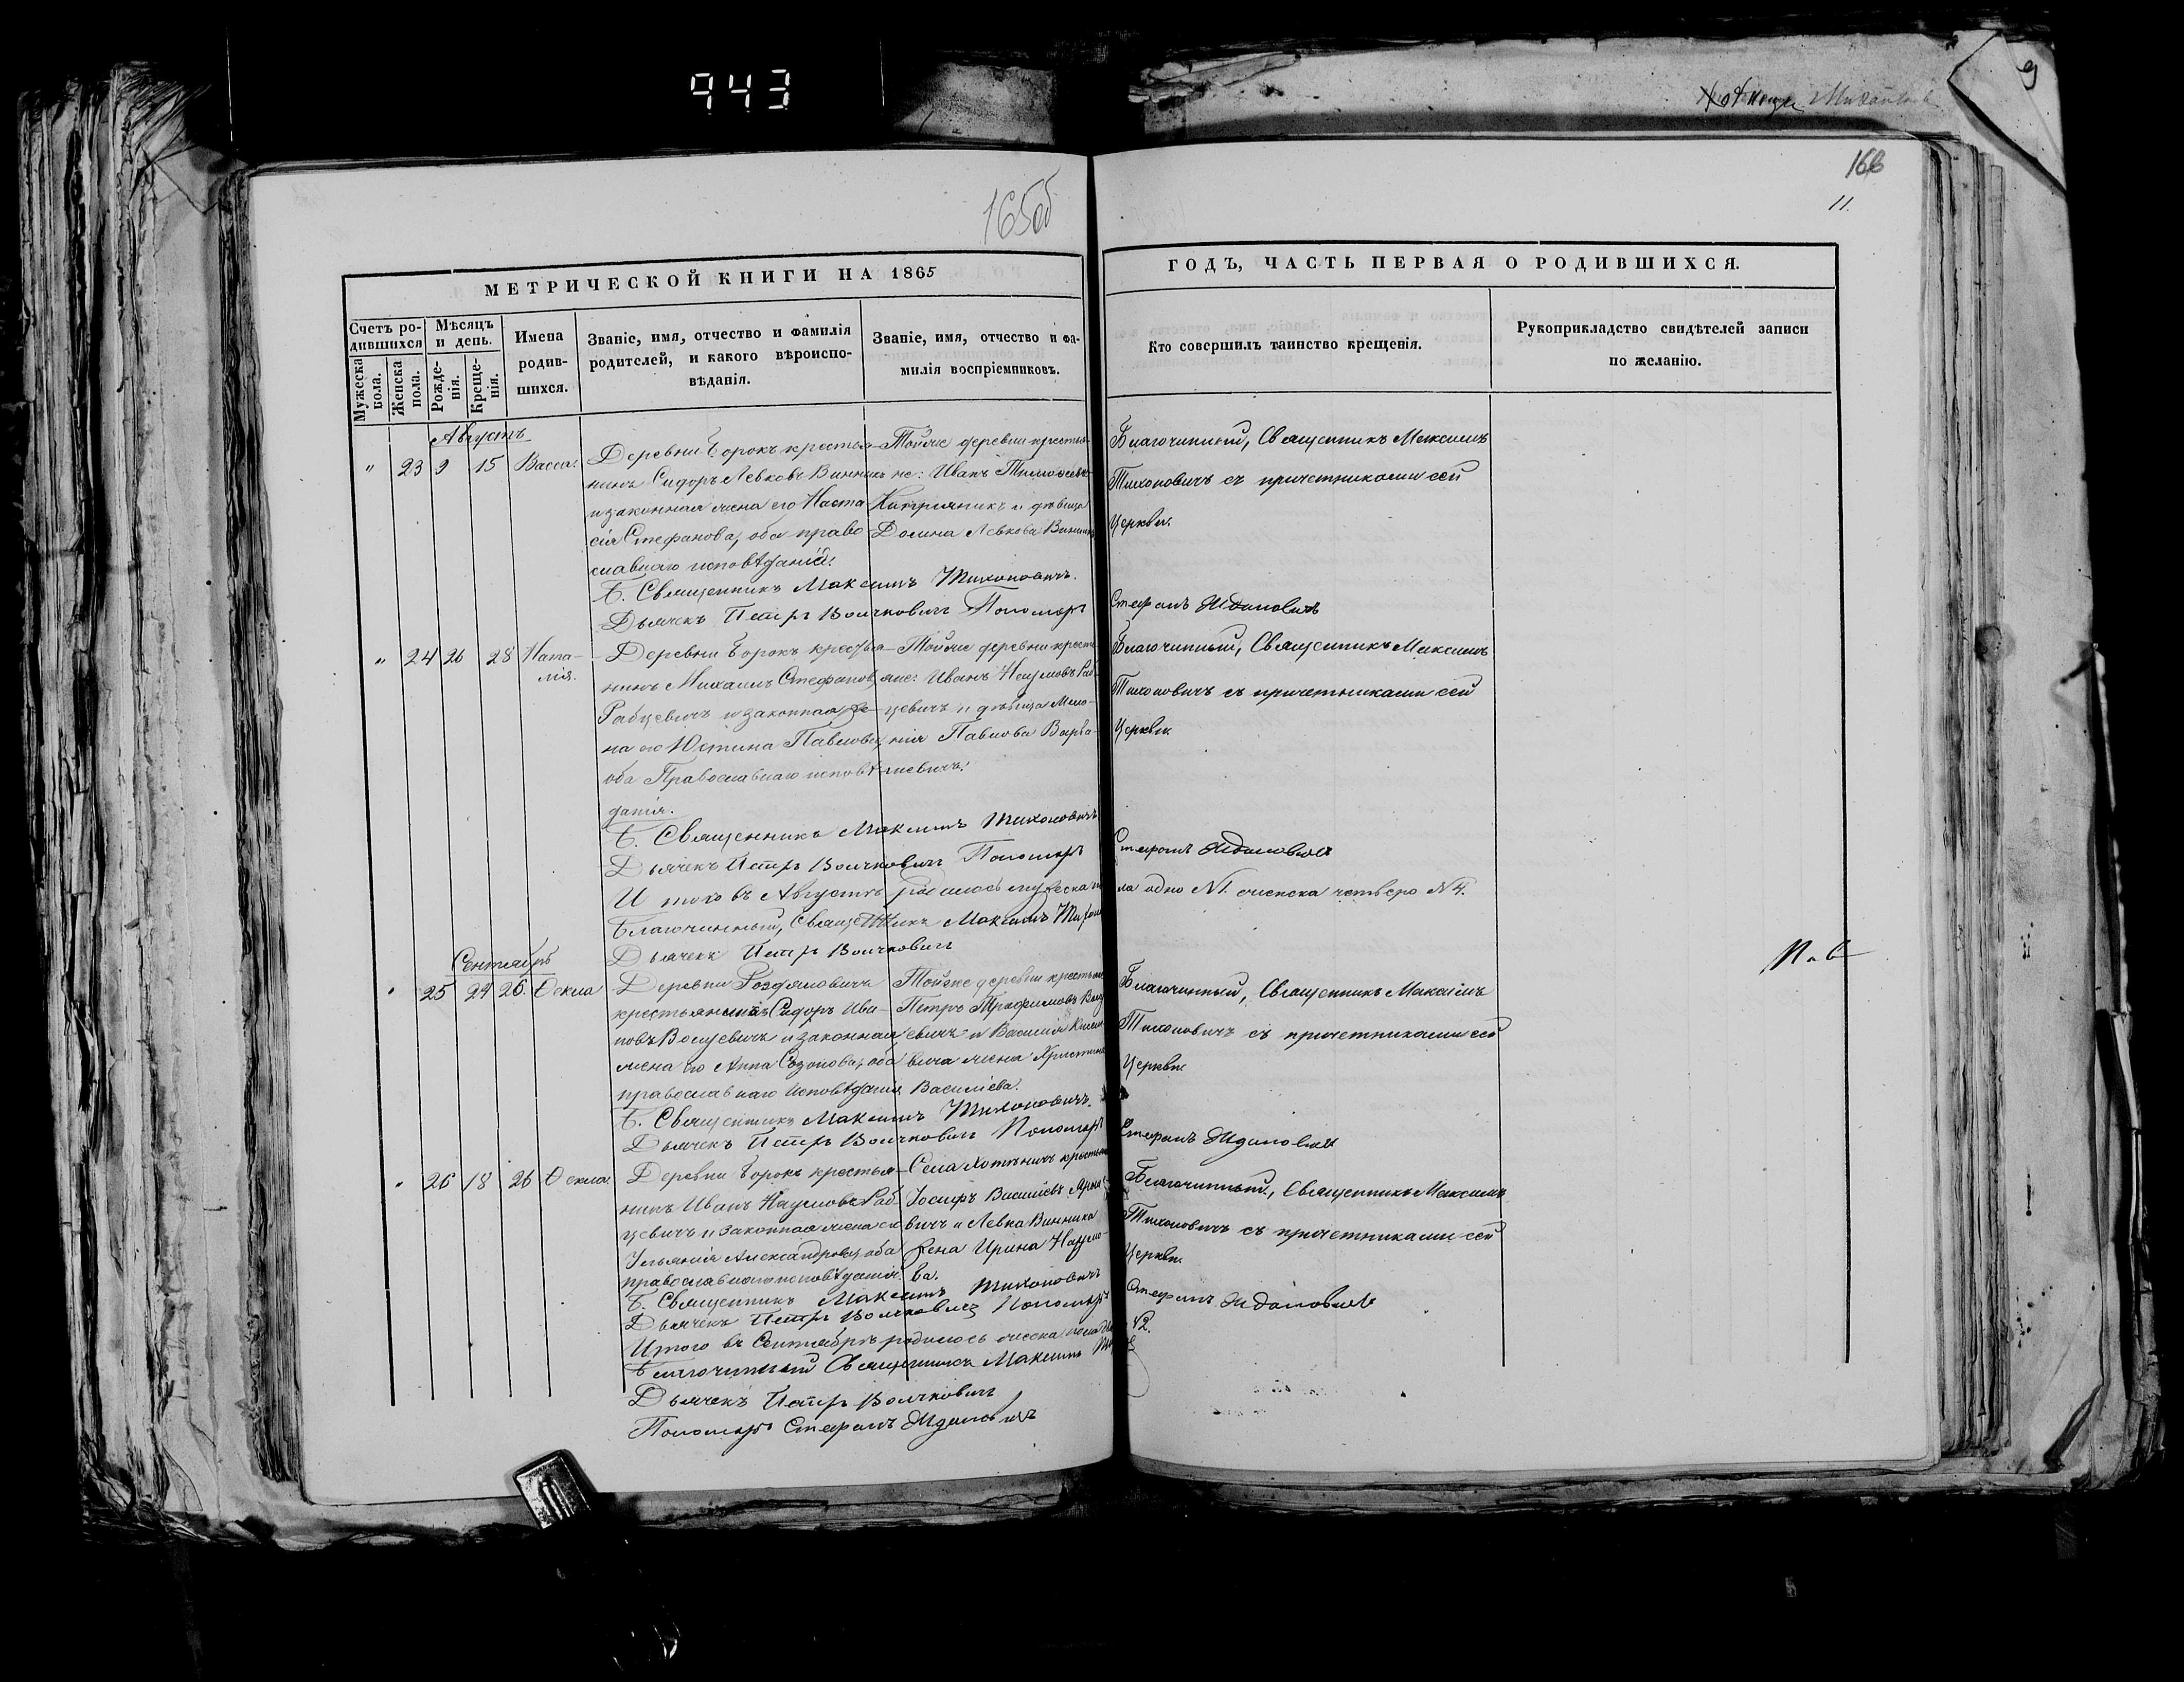 943
166
11.
165об
МЕТРИЧЕСКОЙ КНИГИ НА 1865
ГОДЪ, ЧАСТЬ ПЕРВАЯ О РОДИВШИХСЯ.
Счетъ ро-
дившихся
Мужеска
пола.
Женска
пола.
Мѣсяцъ
и день.
Рожде-
нія.
Креще-
нія.
Имена
родив-
шихся.
Званіе, имя, отчество и фамилія
родителей, и какого вѣроиспо-
вѣданія.
Званіе, имя, отчество и фа-
милія воспріемниковъ.
Кто совершилъ таинство крещенія.
Рукоприкладство свидѣтелей записи
по желанію.
Августъ
" 23 9 15 Васса.
Деревни Борокъ крестья-
нинъ Сидоръ Левковъ Винникъ
и законная жена его Наста
сія Стефанова, оба право
славнаго исповѣданія.
Тойже деревни крестья
не: Иванъ Тимофеевъ
и дѣвица
Левкова Винник
Благочинный, Священникъ Максимъ
Тихоновичъ съ причетниками сей
Церкви.
Б. Священникъ Максимъ Тихоновичъ.
Дьячекъ Петръ Волчковичъ Пономарь Стефанъ Ждановичъ
" 24 26 28 Ната-
лія.
Деревни Борокъ крестья-
нинъ Михаилъ Стефановъ
Рабцевичъ и законная же-
на его Юстина Павлова,
оба Православнаго исповѣ
данія.
Тойже деревни крестья
яне: Иванъ Наумовъ Раб-
цевичъ и дѣвица Мела-
нія Павлова
Благочинный, Священникъ Максимъ
Тихоновичъ съ причетниками сей
Церкви
Б. Священникъ Максимъ Тихоновичъ
Дьячекъ Петръ Волчковичъ Пономарь Стефанъ Ждановичъ
Итого въ Августѣ родилось мужеска по ла одно №1. женска четверо №4.
Благочинный, Священникъ Максимъ Тихоно
Дьячекъ Петръ Волчковичъ
Сентябрь
" 25 24 26. Ѳекла
Деревни
крестьянинъ Сидоръ Ива-
новъ и законная
жена его Анна Созонова, оба
православнаго исповѣданія
Тойже деревни крестьяне
Петръ Трофимовъ
евичъ и Василія
вича жена Христина
Василіева.
Благочинный, Священникъ Максимъ
Тихоновичъ съ причетниками сей
Церкви
Б. Священникъ Максимъ Тихоновичъ.
Дьячекъ Петръ Волчковичъ Пономарь Стефанъ Ждановичъ
" 26 18 26 Ѳекла.
Деревни Борокъ крестья-
нинъ Иванъ Наумовъ Раб-
цевичъ и законная жена его
Ульянія Александрова, оба
православнаго исповѣданія.
Села Хотыничъ крестьян
Іосифъ Василіевъ
вичъ и Левка Винника
жена Ирина Наумо-
ва.
Благочинный, Священникъ Максимъ
Тихоновичъ съ причетниками сей
Церкви.
Б. Священникъ Максимъ Тихоновичъ
Дьячекъ Петръ Волчковичъ Пономарь Стефанъ Ждановичъ
Итого въ Сентябрѣ родилось женска пола №2.
Благочинный Священникъ Максимъ
Дьячекъ Петръ Волчковичъ
Пономарь Стефанъ Ждановичъ